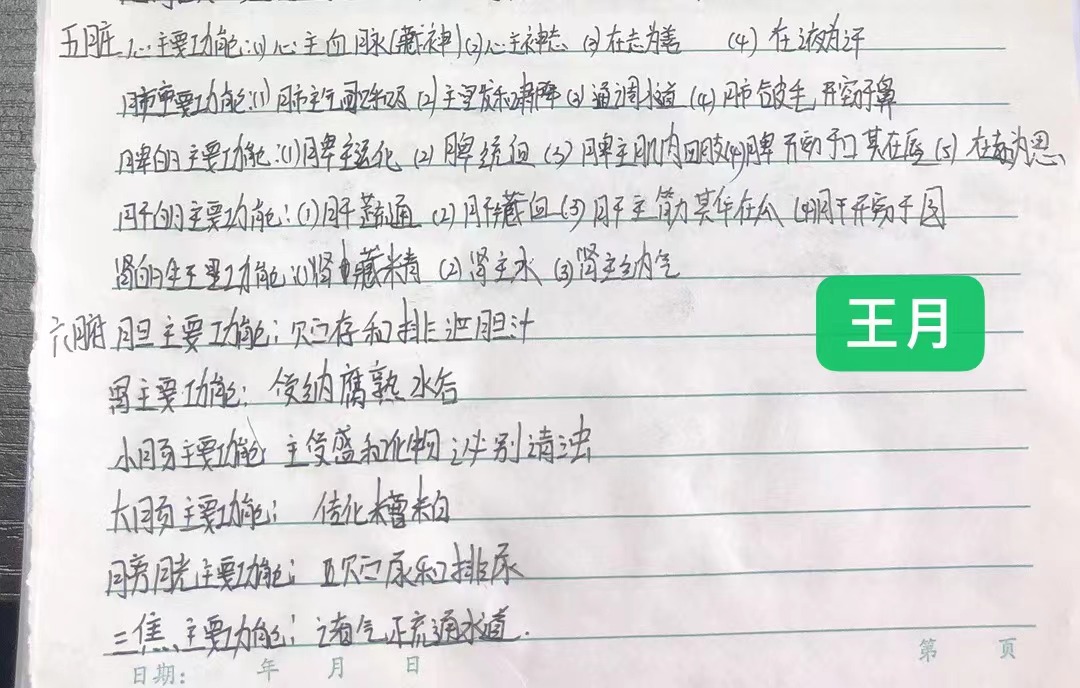 五脏 心:主要功能:(1)心主血脉(藏神)(2)心主神志 (3)在志为喜 (4)在液为汗
肺主要功能:(1)肺主气 司呼吸 (2)主宣发和肃降 (3)通调水道 (4)肺合皮毛,开窍于鼻
脾的主要功能:(1)脾主运化 (2)脾统血 (3)脾主肌肉四肢(4)脾开窍于口 其在唇 (5)在志为思
肝的主要功能:(1)肝疏通 (2)肝藏血 (3)肝主筋 其华在爪 (4)肝开窍于目
肾的主要功能:(1)肾藏精 (2)肾主水 (3)肾主纳气
王月
六腑 胆主要功能:贮存和排泄胆汁
胃主要功能:受纳腐熟水谷
小肠主要功能 主受盛和化物 泌别清浊
大肠主要功能:传化糟粕
膀胱主要功能:贮尿和排尿
三焦主要功能:诸气 流通水道.
第 页
日期: 年 月 日